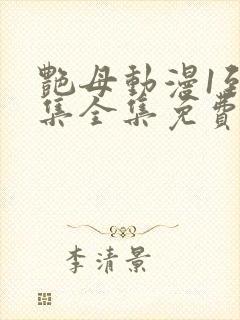 艷母動漫1至
集全集免費
李清景